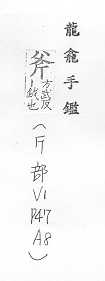 龍龕手鑑
斧
方武反
丨鉞也
(斤部
V1
P47
A8)